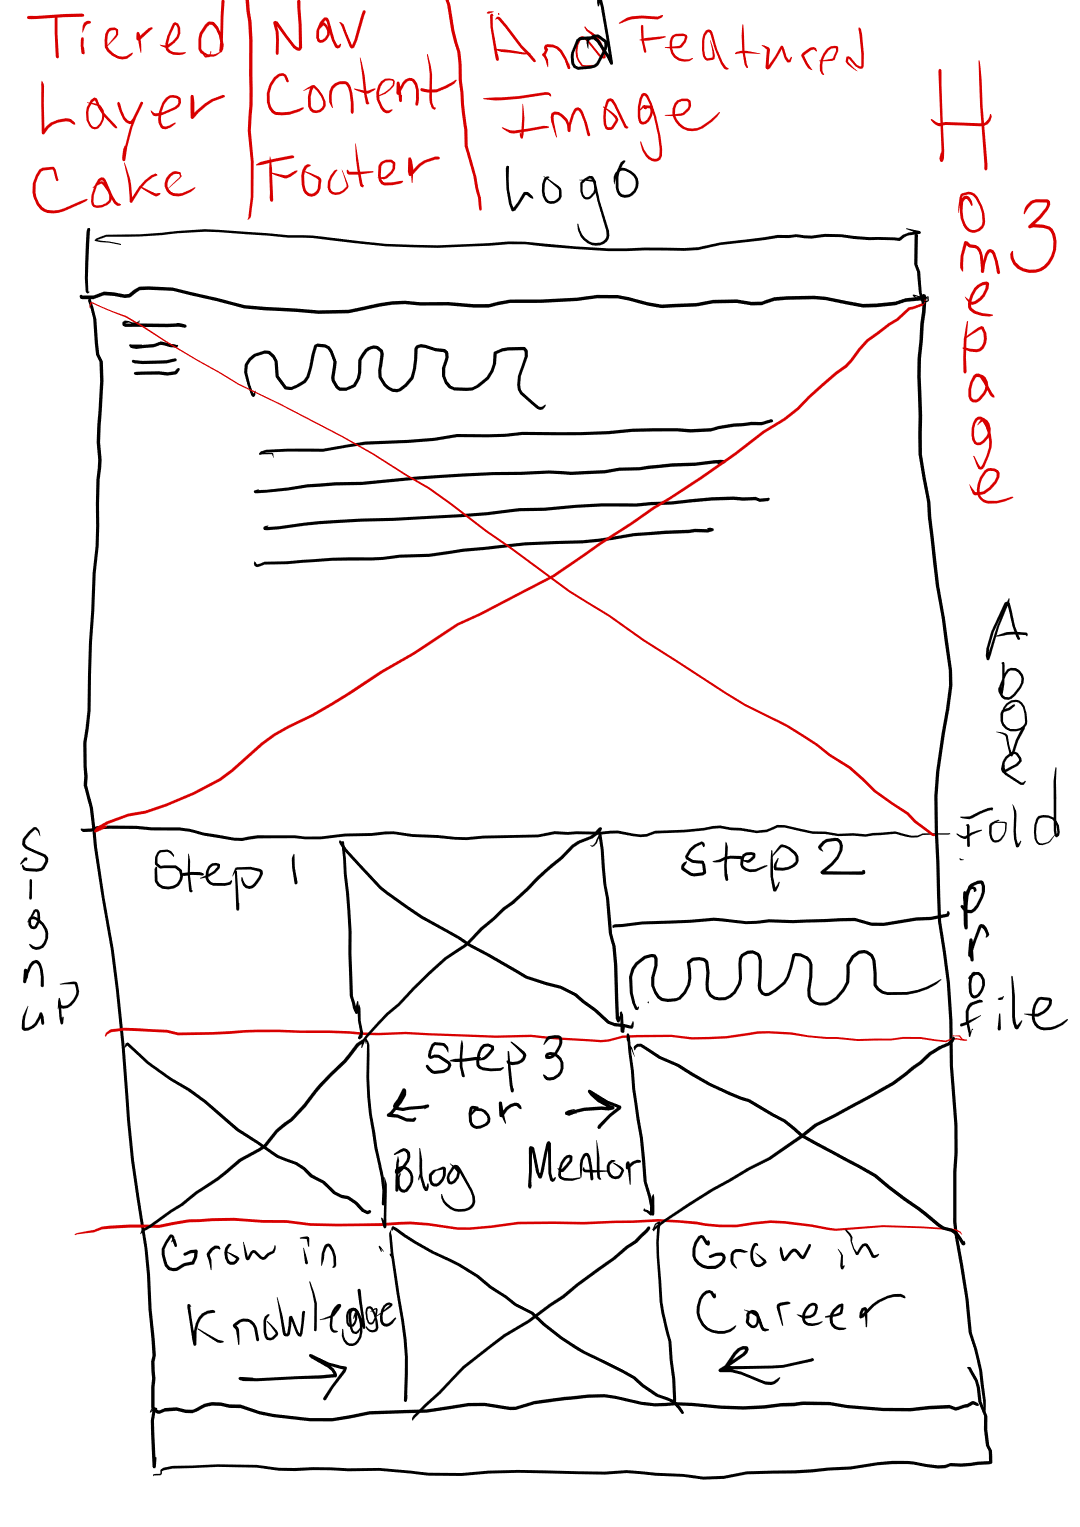 Tiered
Layer
Cake
Nav
Content
Footer
And Featured
Image
Logo
Homepage 3
Above
Fold
Signup
Step 1
Step 2
Profile
Step 3
or
Blog
Mentor
Grow in
Knowledge
Grow in
Career